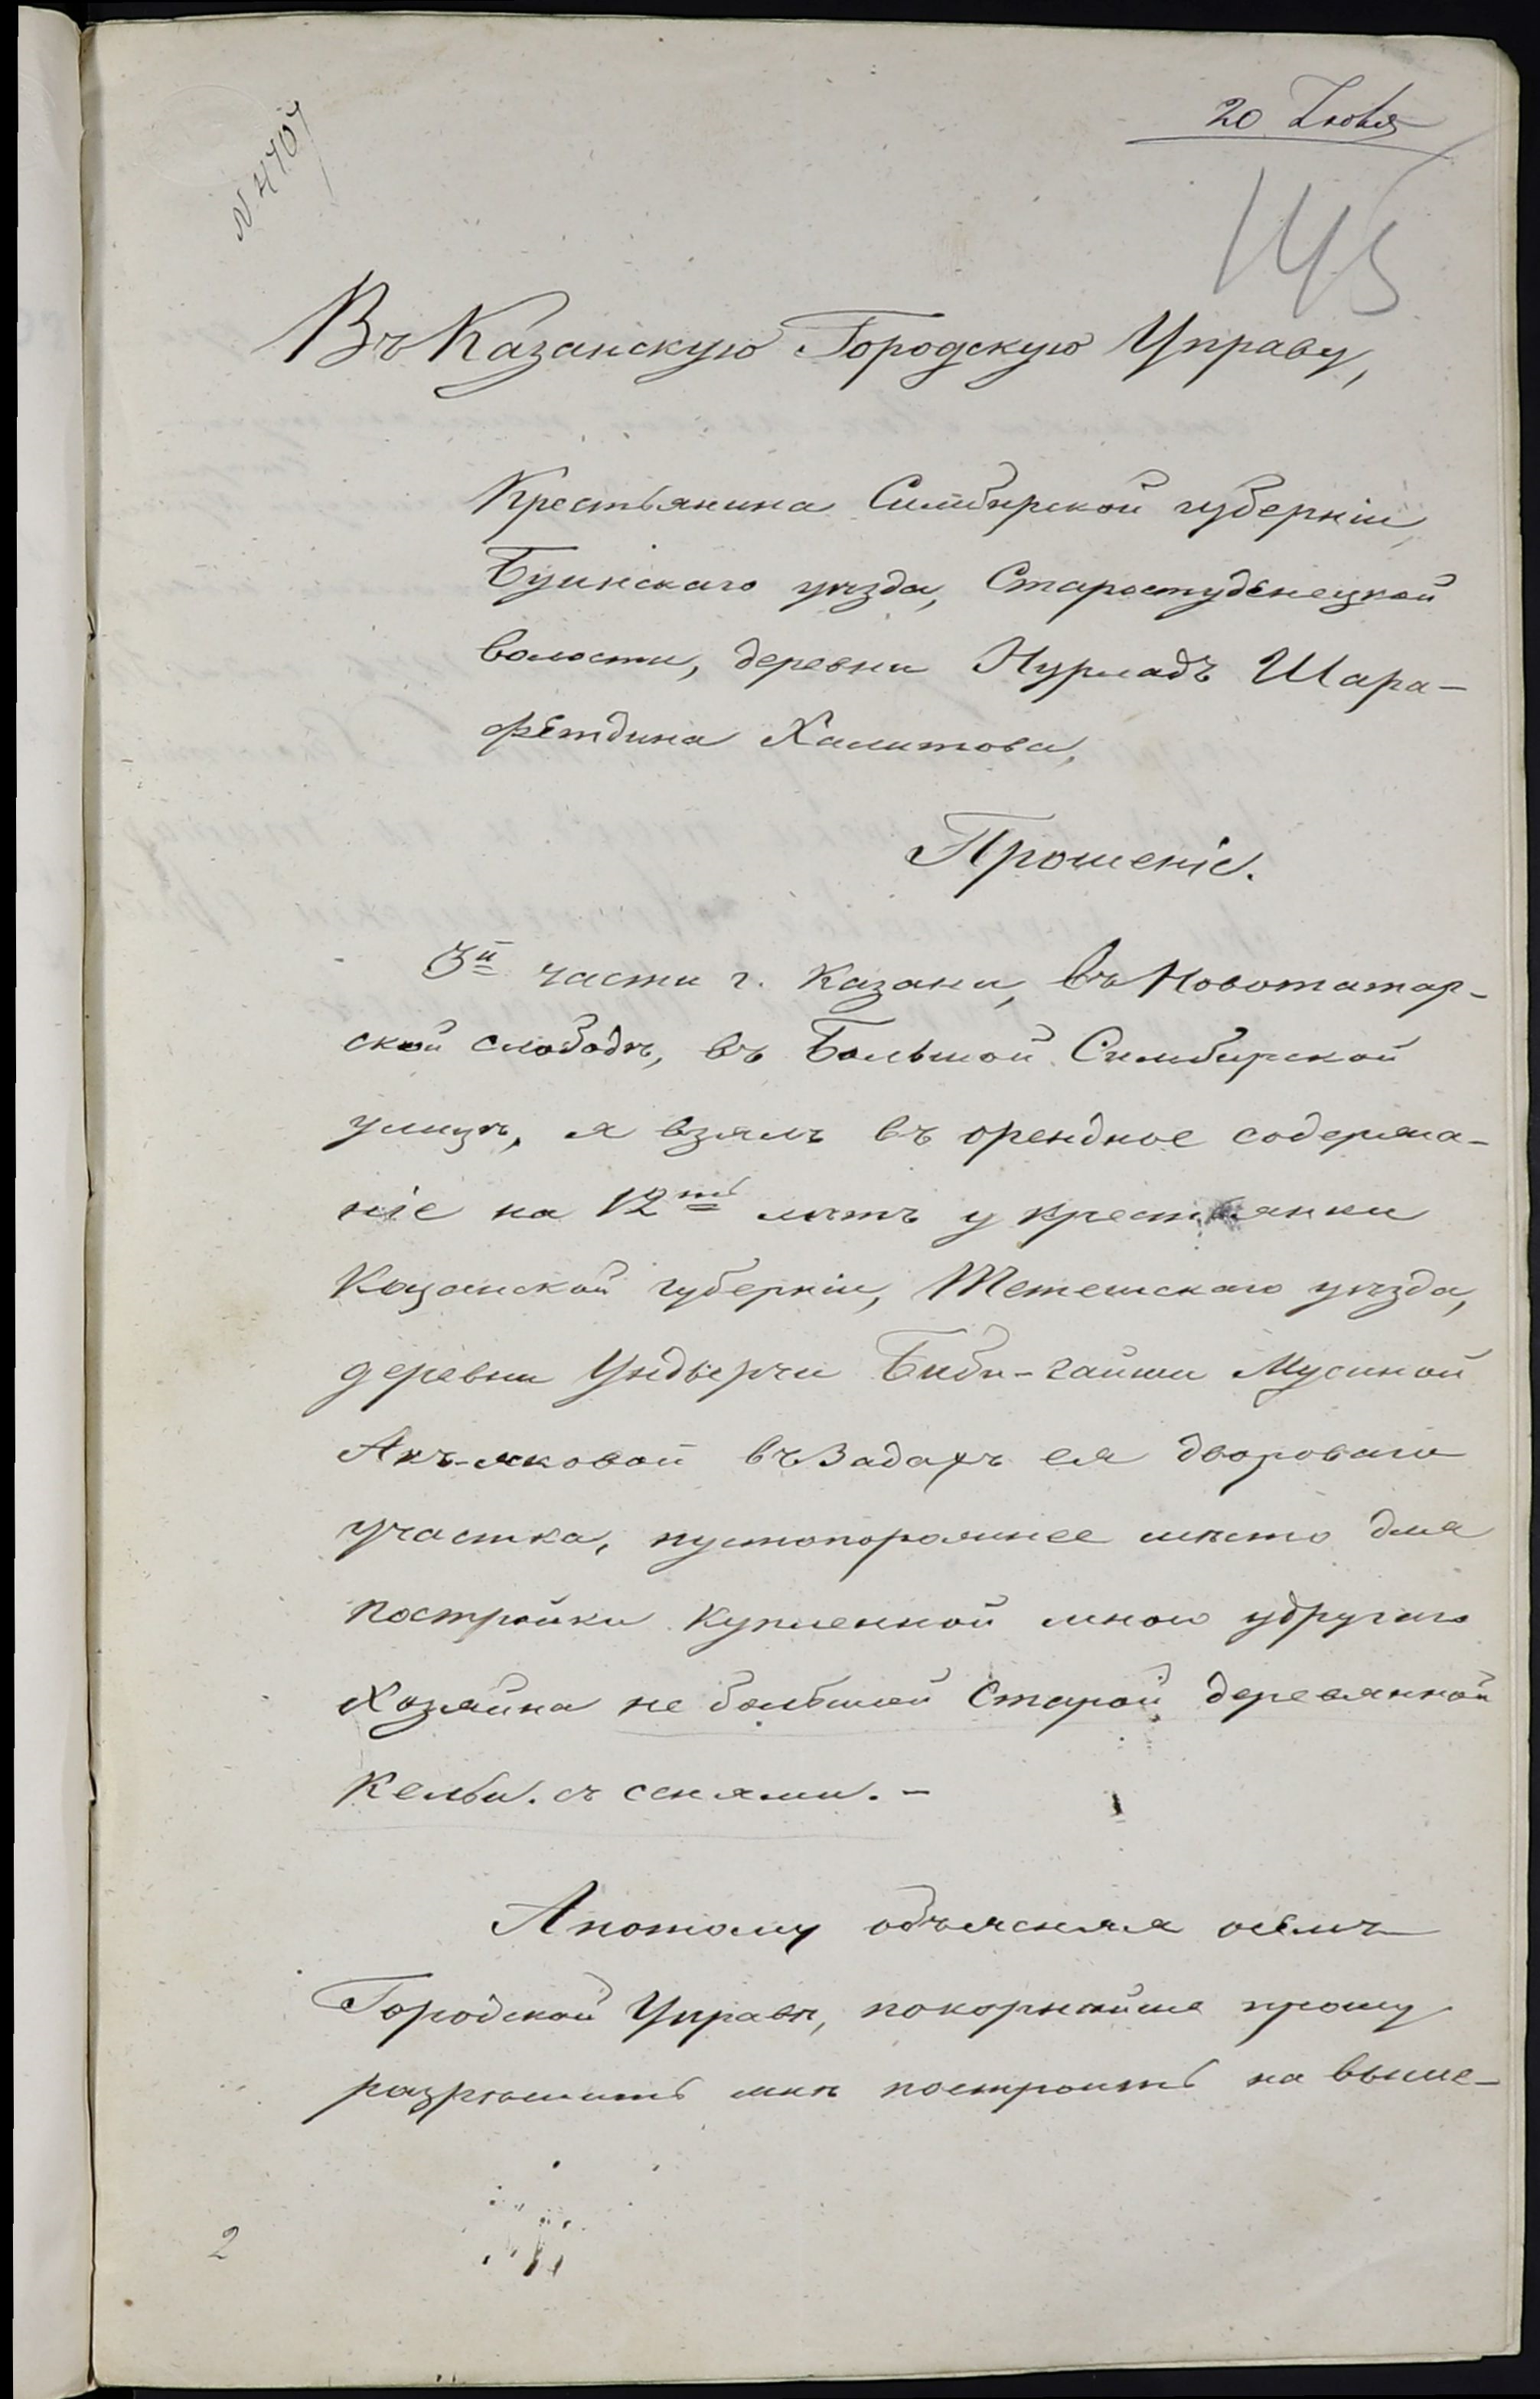 20 Іюля
N 4707
145
Въ Казанскую Городскую Управу,
Крестьянина Симбирской губерніи,
Буинскаго уѣзда, Старостуденецкой
волости, деревни Нурладъ Шара-
фетдина Халитова,
Прошеніе.
3й части г. Казани, въ Новотатар-
ской слободѣ, въ Большой Симбирской
улицѣ, я взялъ въ орендное содержа-
ніе на 12ть лѣтъ у крестьянки
Казанской губерніи, Тетешскаго уѣзда,
деревни Ундерчи Биби-гайши Мусиной
Акъ-яковой въ Задахъ ея двороваго
участка, пустопорожнее мѣсто для
постройки купленной мною у другаго
Хозяина не большой Старой деревянной
Кельи. съ сенями. -
А потому объясняя о семъ
Городской Управѣ, покорнѣйше прошу
разрѣшить мнѣ построить на выше-
2